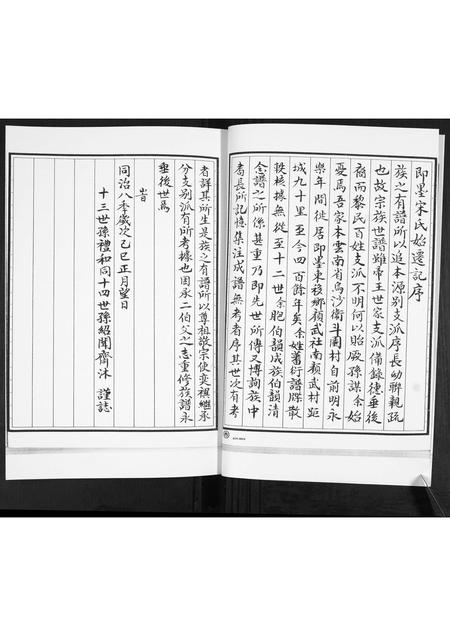 即墨宋氏始遷記序
族之有譜所以追本源別支派序長幼聯親疏
也故宗族世譜雖帝王世家支派備錄德垂後
裔而黎民百姓支派不明何以貽厥孫謀余始
憂焉吾家本雲南省烏沙衛斗園村自前明永
樂年間徙居即墨東移鄉顏武社南顏武村距
城九十里至今四百餘年矣余姓蕃衍譜牒散
軼核據無從至十二世余胞伯韻成族伯韻清
念譜之所係甚重乃即先世所傳又博詢族中
耆長所記憶集注成譜無考者序其世次有考
者詳其所生是族之有譜所以尊祖敬宗使奕禩繼承
分支別派有所考據也因承二伯父之志重修族譜永
垂後世焉
時
同治八年歲次己巳正月望日
十三世孫禮和同十四世孫紹聞齋沐 謹誌